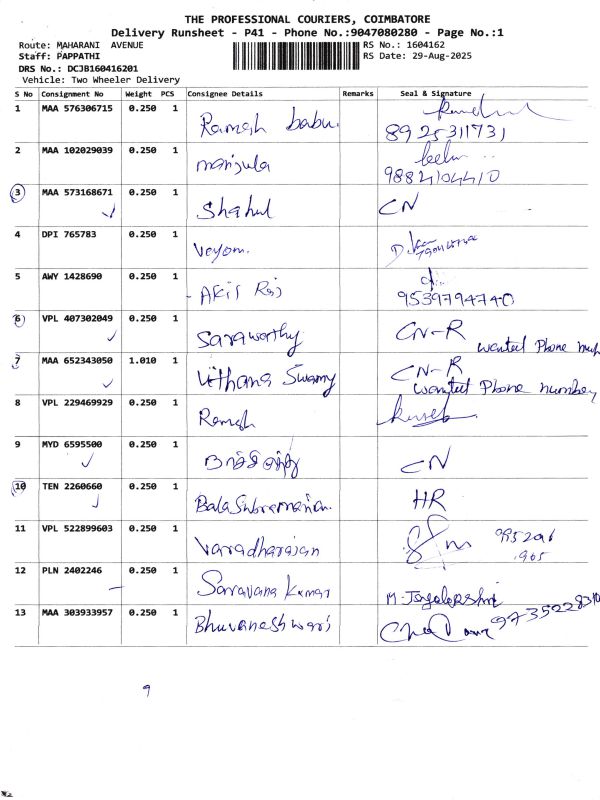 THE PROFESSIONAL COURIERS, COIMBATORE
Delivery Runsheet - P41 - Phone No.:9047080280 - Page No.:1
Route: MAHARANI AVENUE RS No.: 1604162
Staff: PAPPATHI RS Date: 29-Aug-2025
DRS No.: DCJB160416201
Vehicle: Two Wheeler Delivery
S No Consignment No Weight PCS Consignee Details Remarks Seal & Signature
1 MAA 576306715 0.250 1 Ramesh babu
8925311731
2 MAA 102029039 0.250 1 manjula
3 MAA 573168671 0.250 1 Shahul CN
4 DPI 765783 0.250 1
5 AWY 1428690 0.250 1 Akil Raj
9539794740
6 VPL 407302049 0.250 1 Saraworthy CN-R
wanted Phone
7 MAA 652343050 1.010 1 Swamy CN-R
wanted Phone number
8 VPL 229469929 0.250 1 Ramesh
9 MYD 6595500 0.250 1 CN
10 TEN 2260660 0.250 1 BalaSubramanian HR
11 VPL 522899603 0.250 1 Varadharajan
12 PLN 2402246 0.250 1 Saravana Kumar
13 MAA 303933957 0.250 1 Bhuvaneshwari
9